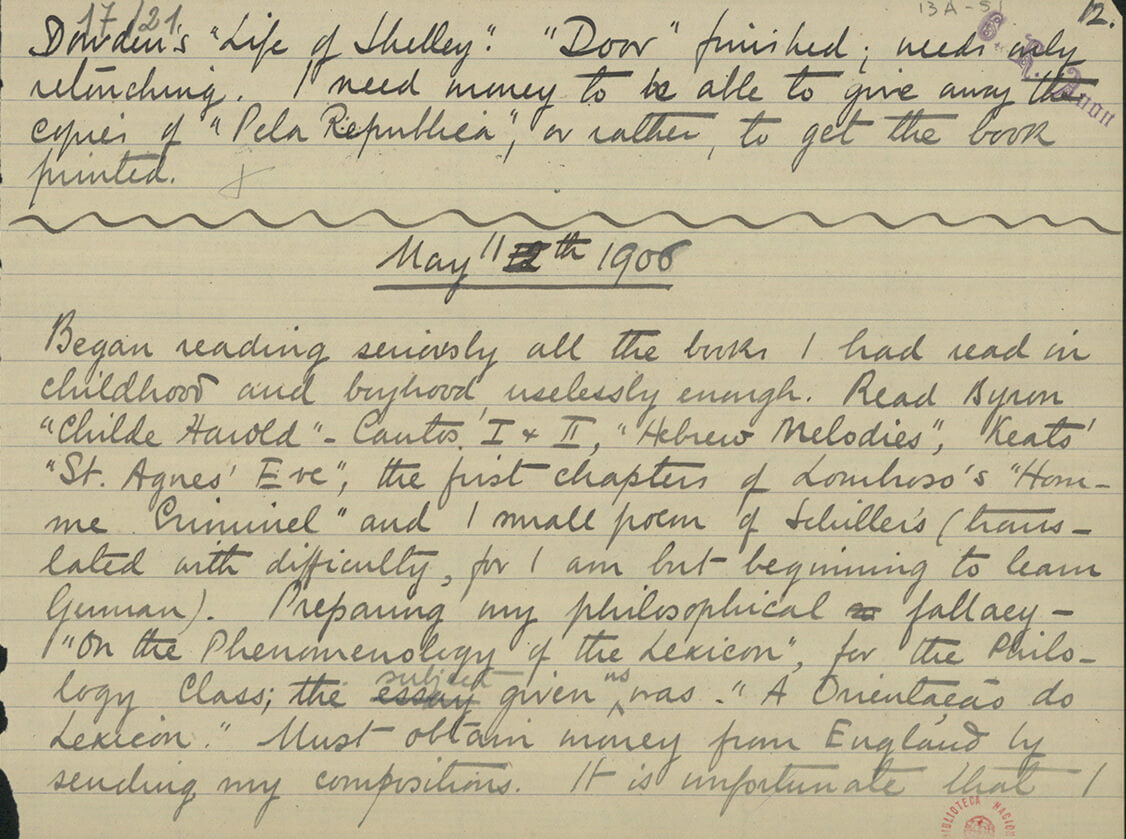 17/21
13A-51
12.
Dowden's "Life of Shelley". "Door" finished; needs only
retouching. I need money to be able to give away the
copies of "Pela Republica", or rather, to get the book
printed.
May 11 12th 1906
Began reading seriously all the books I had read in
childhood and boyhood, uselessly enough. Read Byron
"Childe Harold" - Cantos I & II, "Hebrew Melodies", Keats'
"St. Agnes' Eve", the first chapters of Lombroso's "Hom-
me Criminel" and 1 small poem of Schiller's (trans-
lated with difficulty, for I am but beginning to learn
German). Preparing my philosophical fallacy -
"On the Phenomenology of the Lexicon", for the Philo-
logy Class; the essay subject given us was "A Orientação do
Lexicon." Must obtain money from England by
sending my compositions. It is unfortunate that I
BIBLIOTECA NACIO